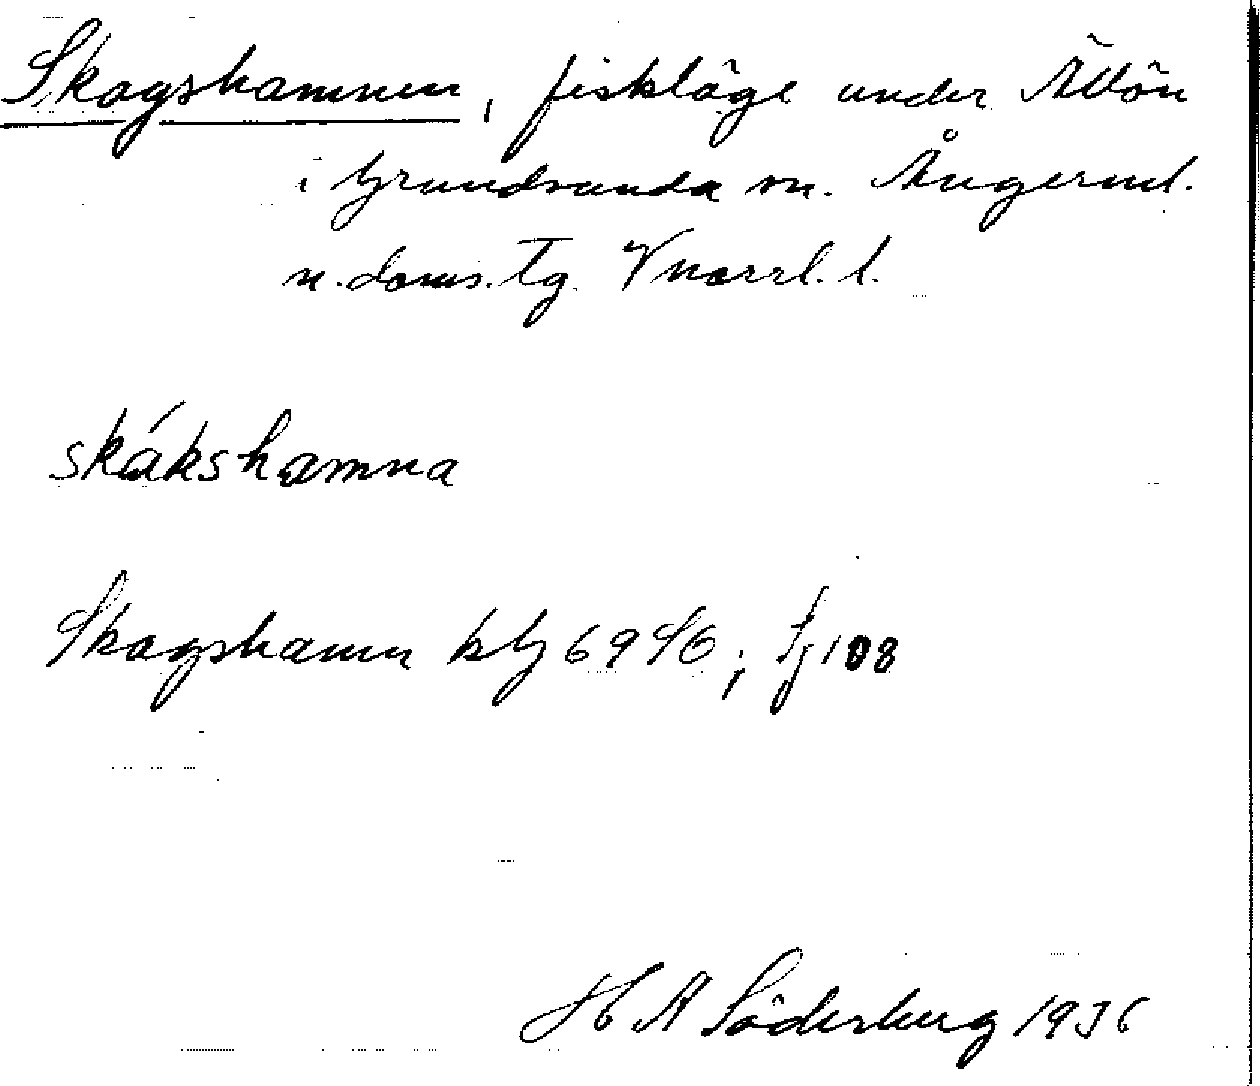 Skagshamnen, fiskläge under Ällön
i Grundsunda sn. Ångerml.
n. doms. tg. Vnorrl. l.
skákshamna
Skagshamn kbl 69 SO; fj 108
H A Söderberg 1936